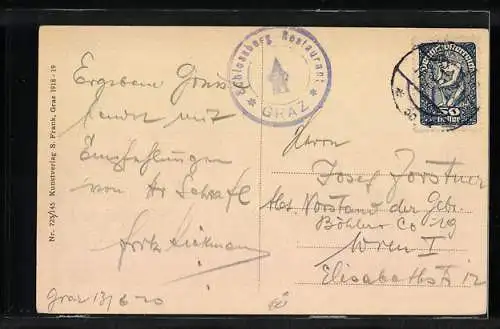 Nr. 725/145 Kunstverlag S. Frank, Graz 1918-19
Schlossberg Restaurant
* GRAZ *
50
Heller
Ergebene Grüsse
sendet mit
Empfehlungen
von
Graz 13/6 20
Herrn
Josef Forstner
Abt. Vorstand der Gebr.
Böhler Co
Wien I
Elisabethstr 12